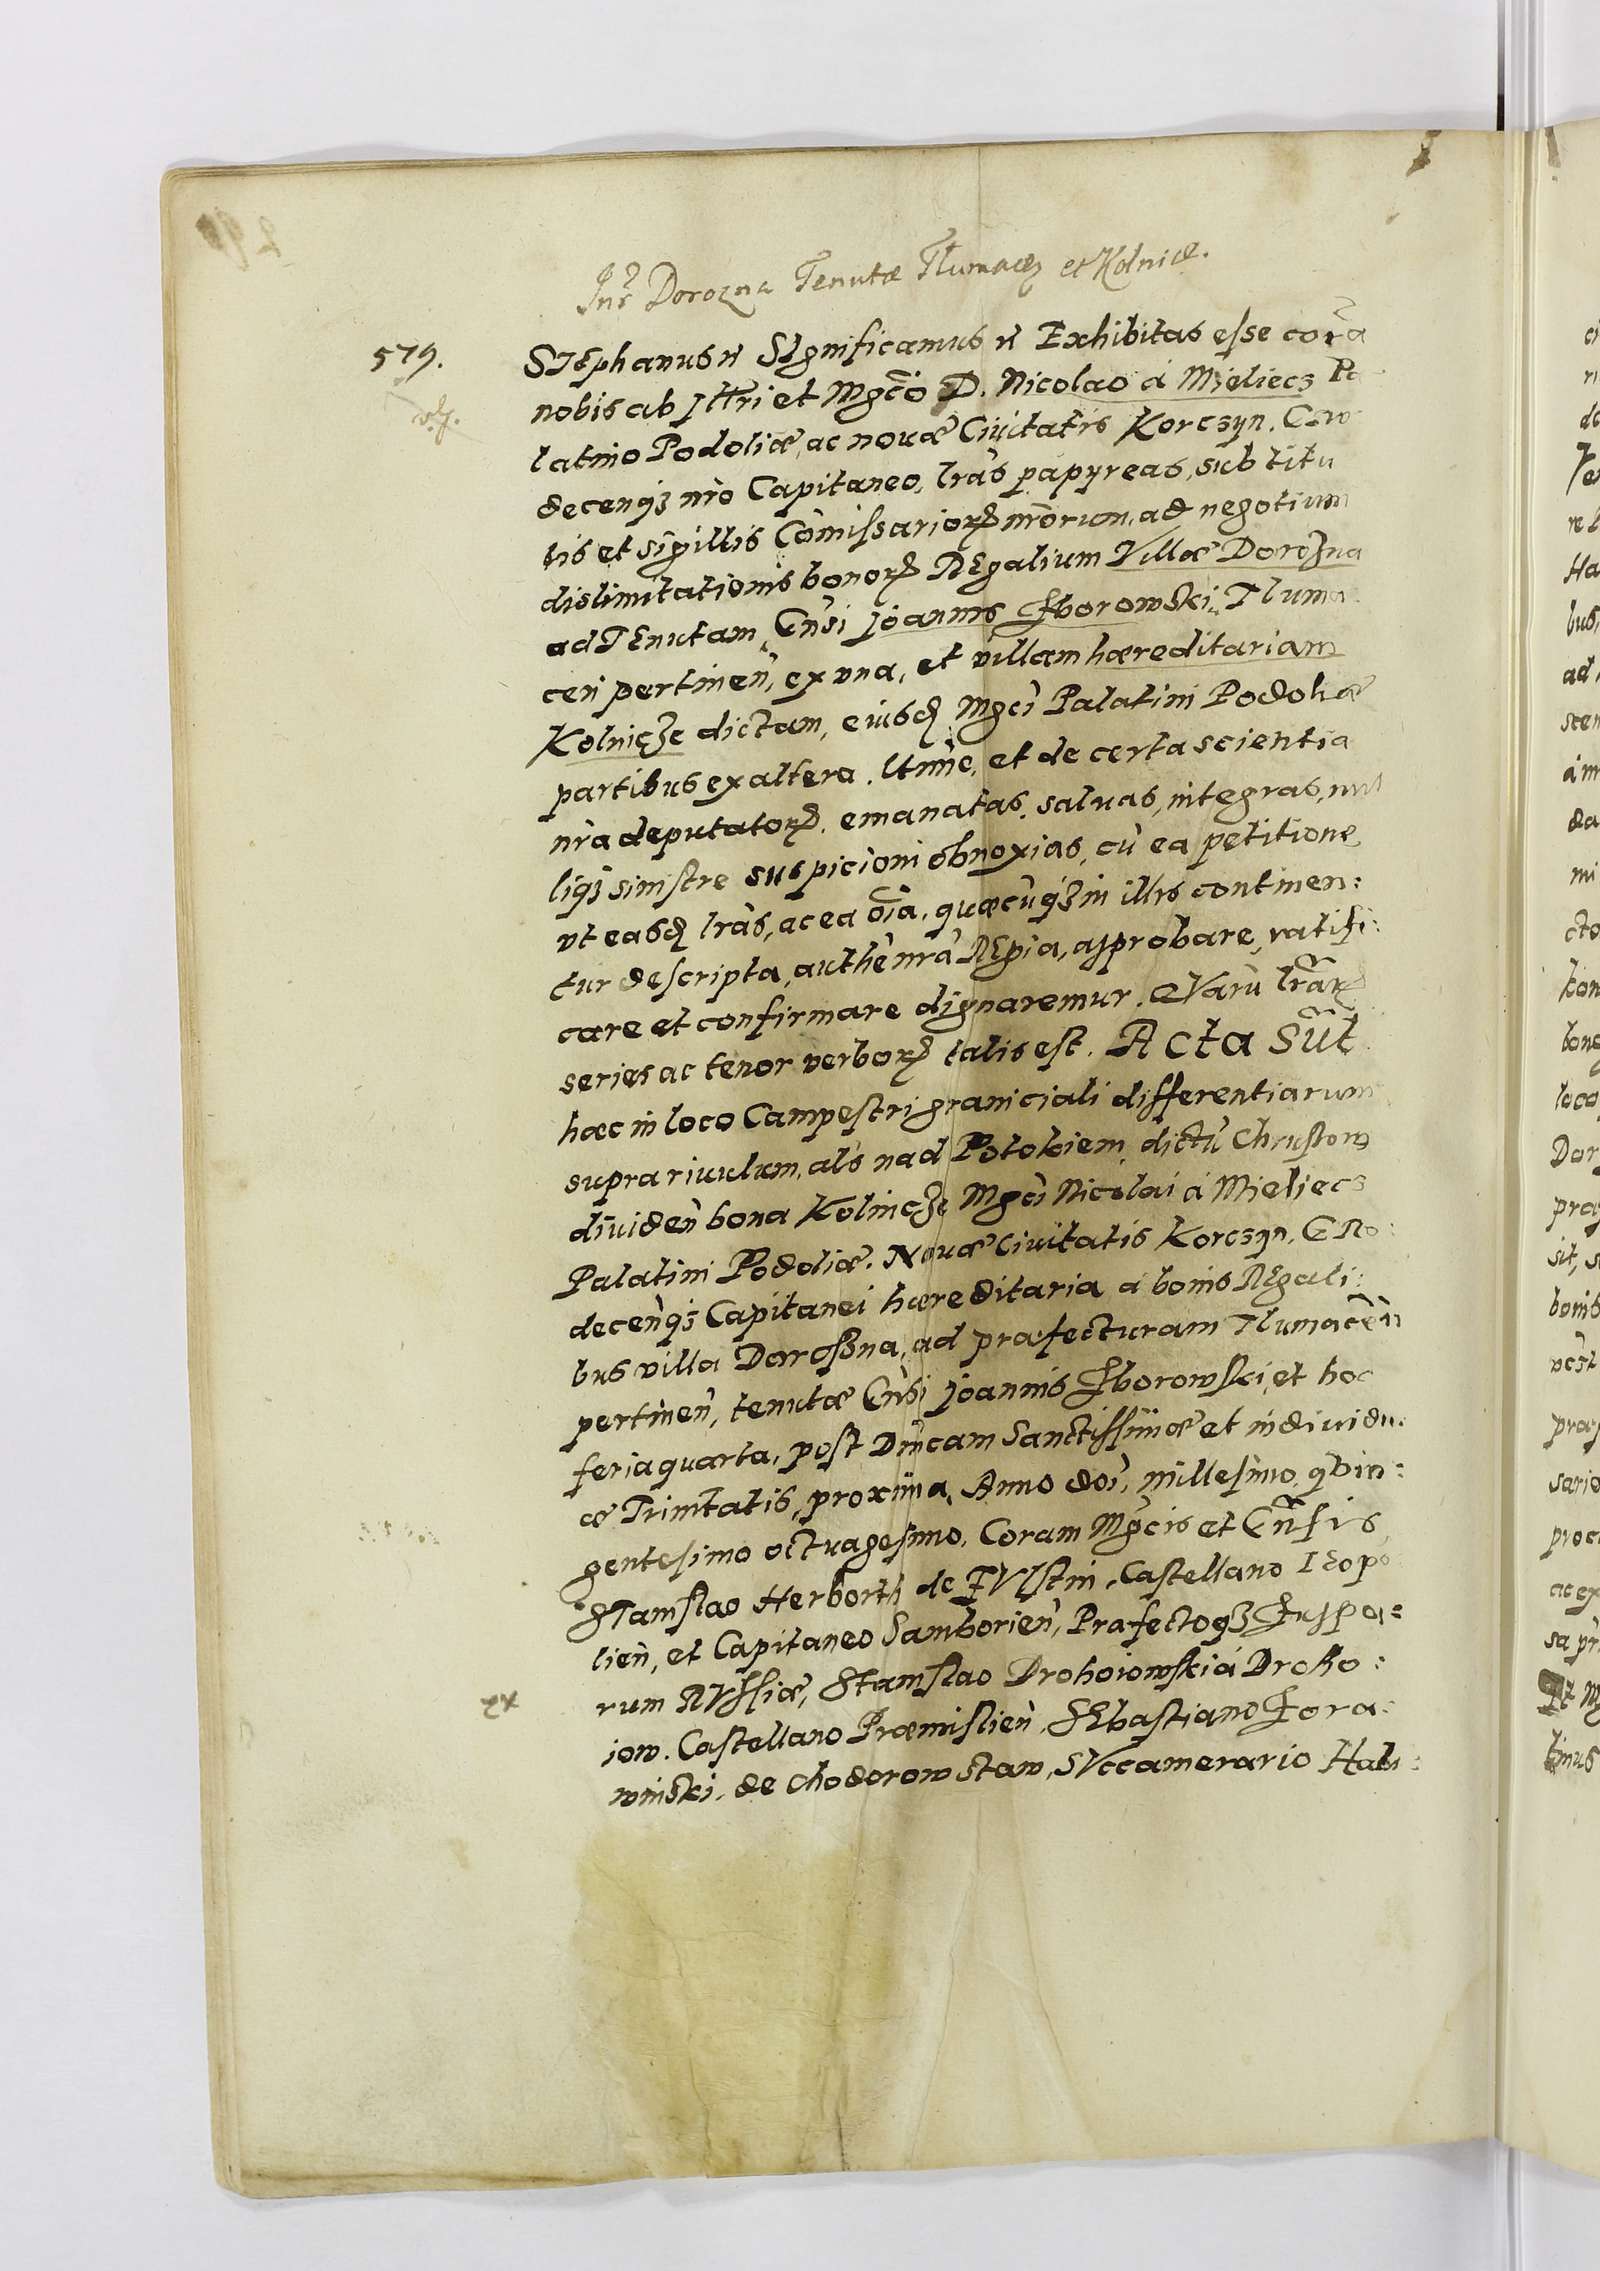 Intr Dorozna Tenutæ Tlumacz et Kolnicæ.
579.
STEphanus rẽ Significamus rẽ Exhibitas esse corã
nobis ab Jllri et Mgcõ D. Nicolao á Mieliecz Pa
latino Podoliæ, ac nouæ Ciuitatis Korczyn. Gro
decenqȝ nrõ Capitaneo, lrãs papyreas, sub titu
lis et sigillis Comissariorꝝ nrõrum, ad negotium
dislimitationis bonorꝝ REgalium Villæ Dorozna
ad TEnutam Gnsi Joannis Sborowski, Tluma
cen pertinen, ex vna, et villam hæreditariam
Kolnicze dictam, eiusdꝫ Mgci Palatini Podoliæ
partibus ex altera. Utrinc, et de certa scientia
nra deputatorꝝ. emanatas, saluas, integras, nul
liqȝ sinistre suspicioni obnoxias, cũ ea petitione
vt easdꝫ lras, ac ea oĩa, quæcũqȝ in illis continen:
tur descripta, authe nrã REgia, approbare, ratifi:
care et confirmare dignaremur. QVarũ lrãrꝝ
series ac tenor verborꝝ talis est. Acta Sũt
hæc in loco Campestri graniciali differentiarum
supra riuulum, als nad Potokiem dictũ Chrustow
diuiden bona Kolnicze Mgci Nicolai á Mieliecz
Palatini Podoliæ. Nouæ Ciuitatis Korczyn. GRo:
decenqȝ Capitanei hæreditaria á bonis REgali:
bus villa Doroszna, ad præfecturam Tlumacen
pertinen, tenutæ Gnsi Joannis Sborowski, et hoc
feria quarta, post Dnicam Sanctissimæ et indiuidu:
æ Trinitatis, proxima, Anno doĩ, millesimo, qvin:
gentesimo octuagesimo, Coram Mgcis et Gnsis
STanislao Herborth de FVlstin, Castellano LEopo
lien, et Capitaneo Samborien, Præfectoqȝ Zuppa:
rum RVssiæ, Stanislao Drohoiowski á Droho:
iow. Castellano Præmislien, SEbastiano Zora:
winski, de Chodorowstaw, SVccamerario Hali: